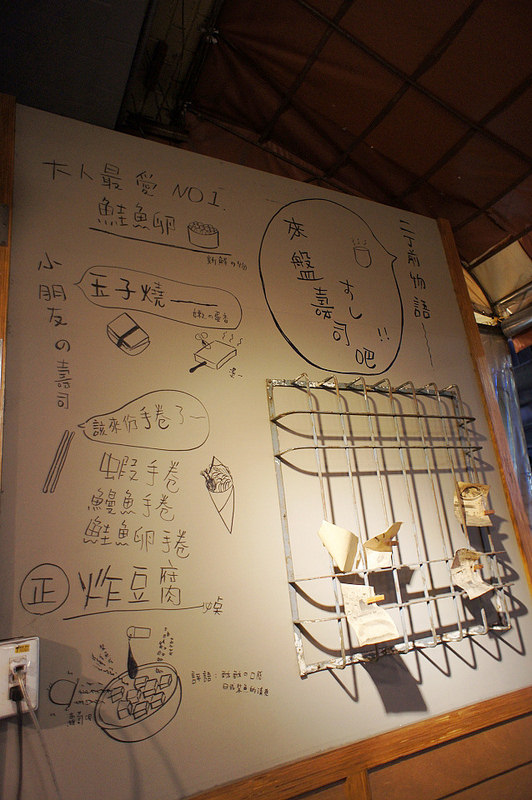 大人最愛 NO1
鮭魚卵
新鮮の
小朋友の壽司
玉子燒
該來份手卷了
蝦手卷
鰻魚手卷
鮭魚卵手卷
正 炸豆腐
二丁前物語
來盤壽司吧!!
すし